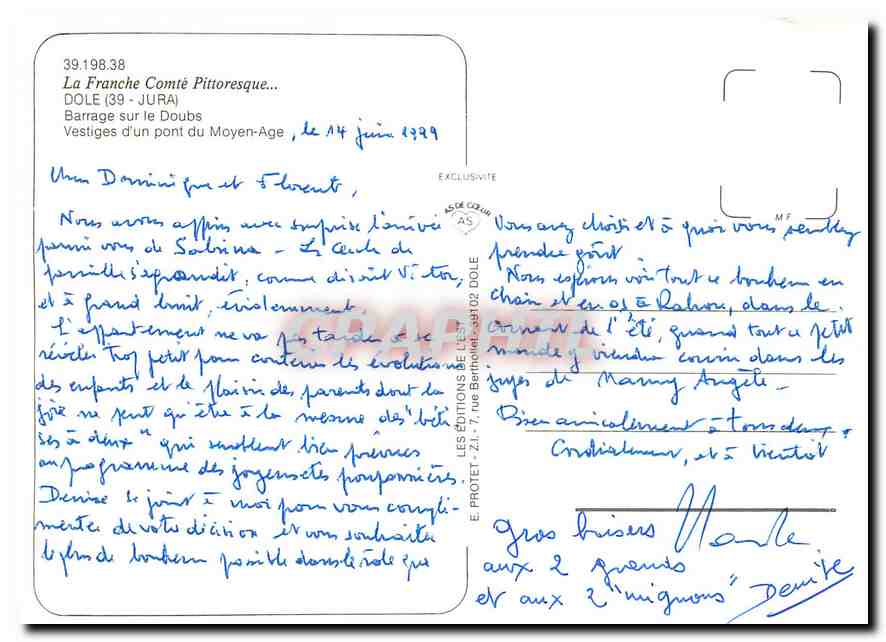 39.198.38
La Franche Comté Pittoresque...
DOLE (39 - JURA)
Barrage sur le Doubs
Vestiges d'un pont du Moyen-Age, le 14 juin 1999
Dominique et Florent,
Nous avons appris avec surprise l'arrivée
parmi vous de Sabrina - Le cercle de
famille s'agrandit, comme disait Victor,
et à grand bruit, évidemment
L'appartement ne va pas tarder à se
révéler trop petit pour contenir les évolutions
des enfants et le plaisir des parents dont la
joie ne peut qu'être à la mesure des "bêti
ses à deux" qui semblent bien prévues
au programme des joyeusetés pouponnières.
Denise se joint à moi pour vous compli-
menter de votre décision et vous souhaiter
le plus de bonheur possible dans le rôle que
EXCLUSIVITE
AS DE CŒUR
AS
LES EDITIONS DE L'EST
E. PROTET - Z.I. - 7, rue Berthollet - 39102 DOLE
MF
Vous avez choisi et à quoi vous semblez
prendre goût
Nous espérons voir tout ce bonheur en
chair et en os à Rahon, dans le
courant de l'été, quand tout ce petit
monde y viendra courir dans les
jupes de Mamy Angèle -
Bien amicalement à tous deux.
Cordialement, et à bientôt
gros baisers
aux 2 grands
et aux 2 "mignons" Denise
CPAPHIL